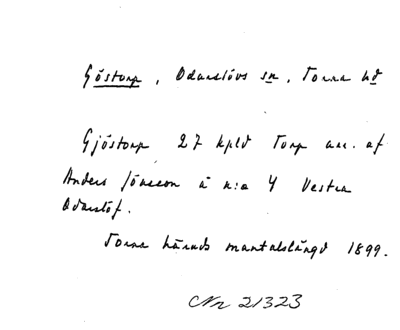 Göstorp, Odarslövs sn, Torna hd
Gjöstorp 27 kpld Torp anv. af
Anders Jönsson å n:o 4 Vestra
Odarslöf.
Torna härads mantalslängd 1899.
Nr 21323